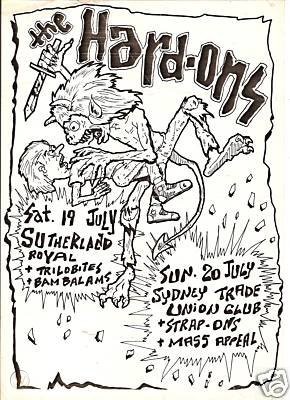 the Hard-ons
Sat. 19 July
SUTHERLAND
ROYAL
+ TRILOBITES
+ BAMBALAMS
SUN. 20 JULY
SYDNEY TRADE
UNION CLUB
+ STRAP-ONS
+ MASS APPEAL